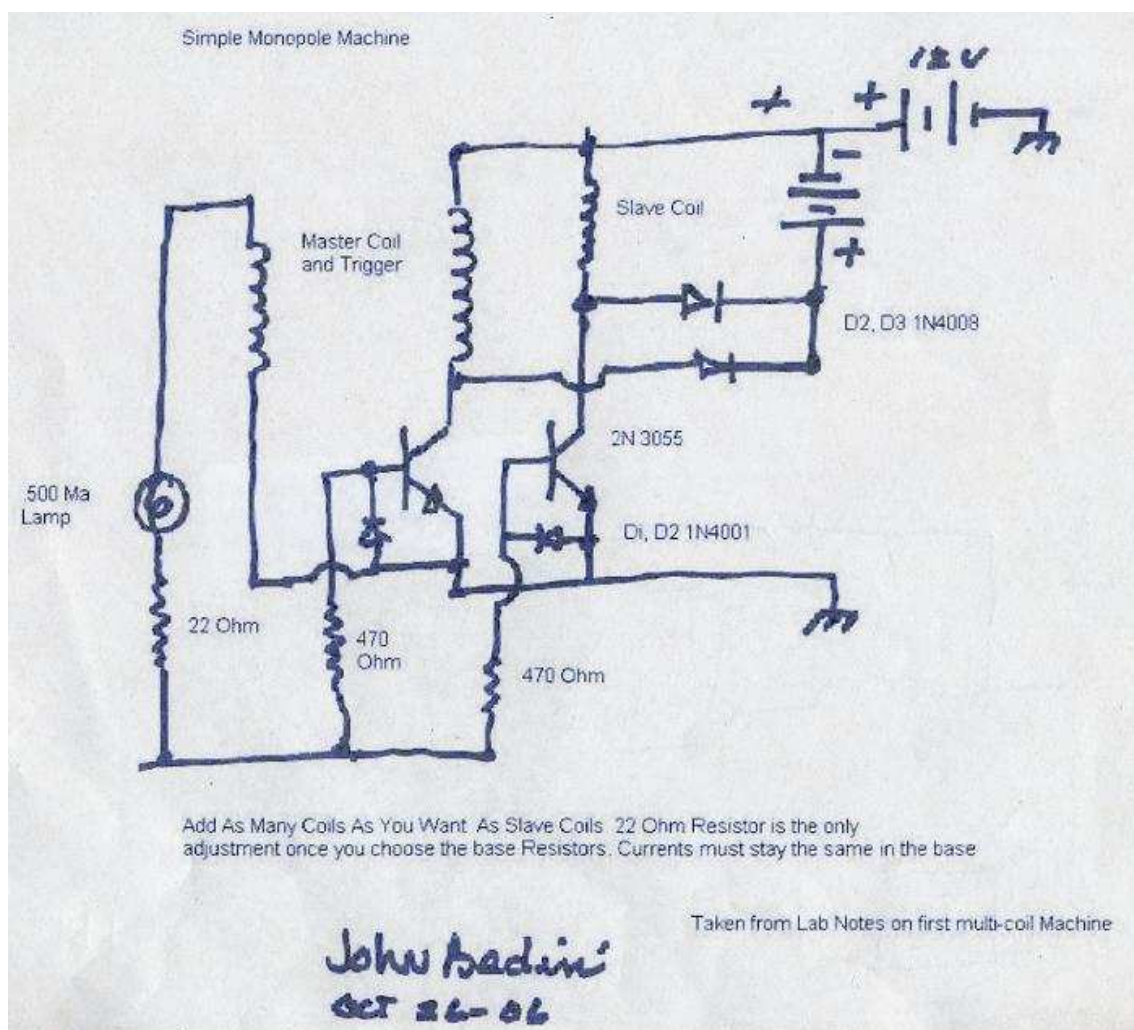 Simple Monopole Machine
12 V
+
+
-
Slave Coil
Master Coil
and Trigger
+
D2, D3 1N4008
2N 3055
.500 Ma
Lamp
Di, D2 1N4001
22 Ohm
470
Ohm
470 Ohm
Add As Many Coils As You Want As Slave Coils 22 Ohm Resistor is the only
adjustment once you choose the base Resistors. Currents must stay the same in the base
Taken from Lab Notes on first multi-coil Machine
John Bedini
OCT 26-06